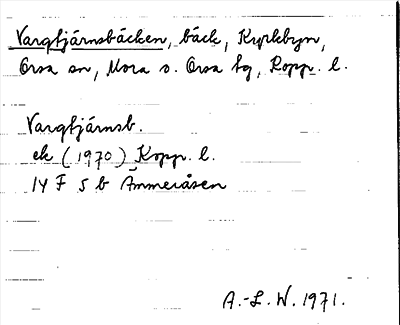 Vargtjärnsbäcken, bäck, Kyrkbyn,
Orsa sn, Mora o. Orsa tg, Kopp. l.
Vargtjärnsb.
ek (1970) Kopp. l.
14 F 5 b Ämmeråsen
A.-L. W. 1971.